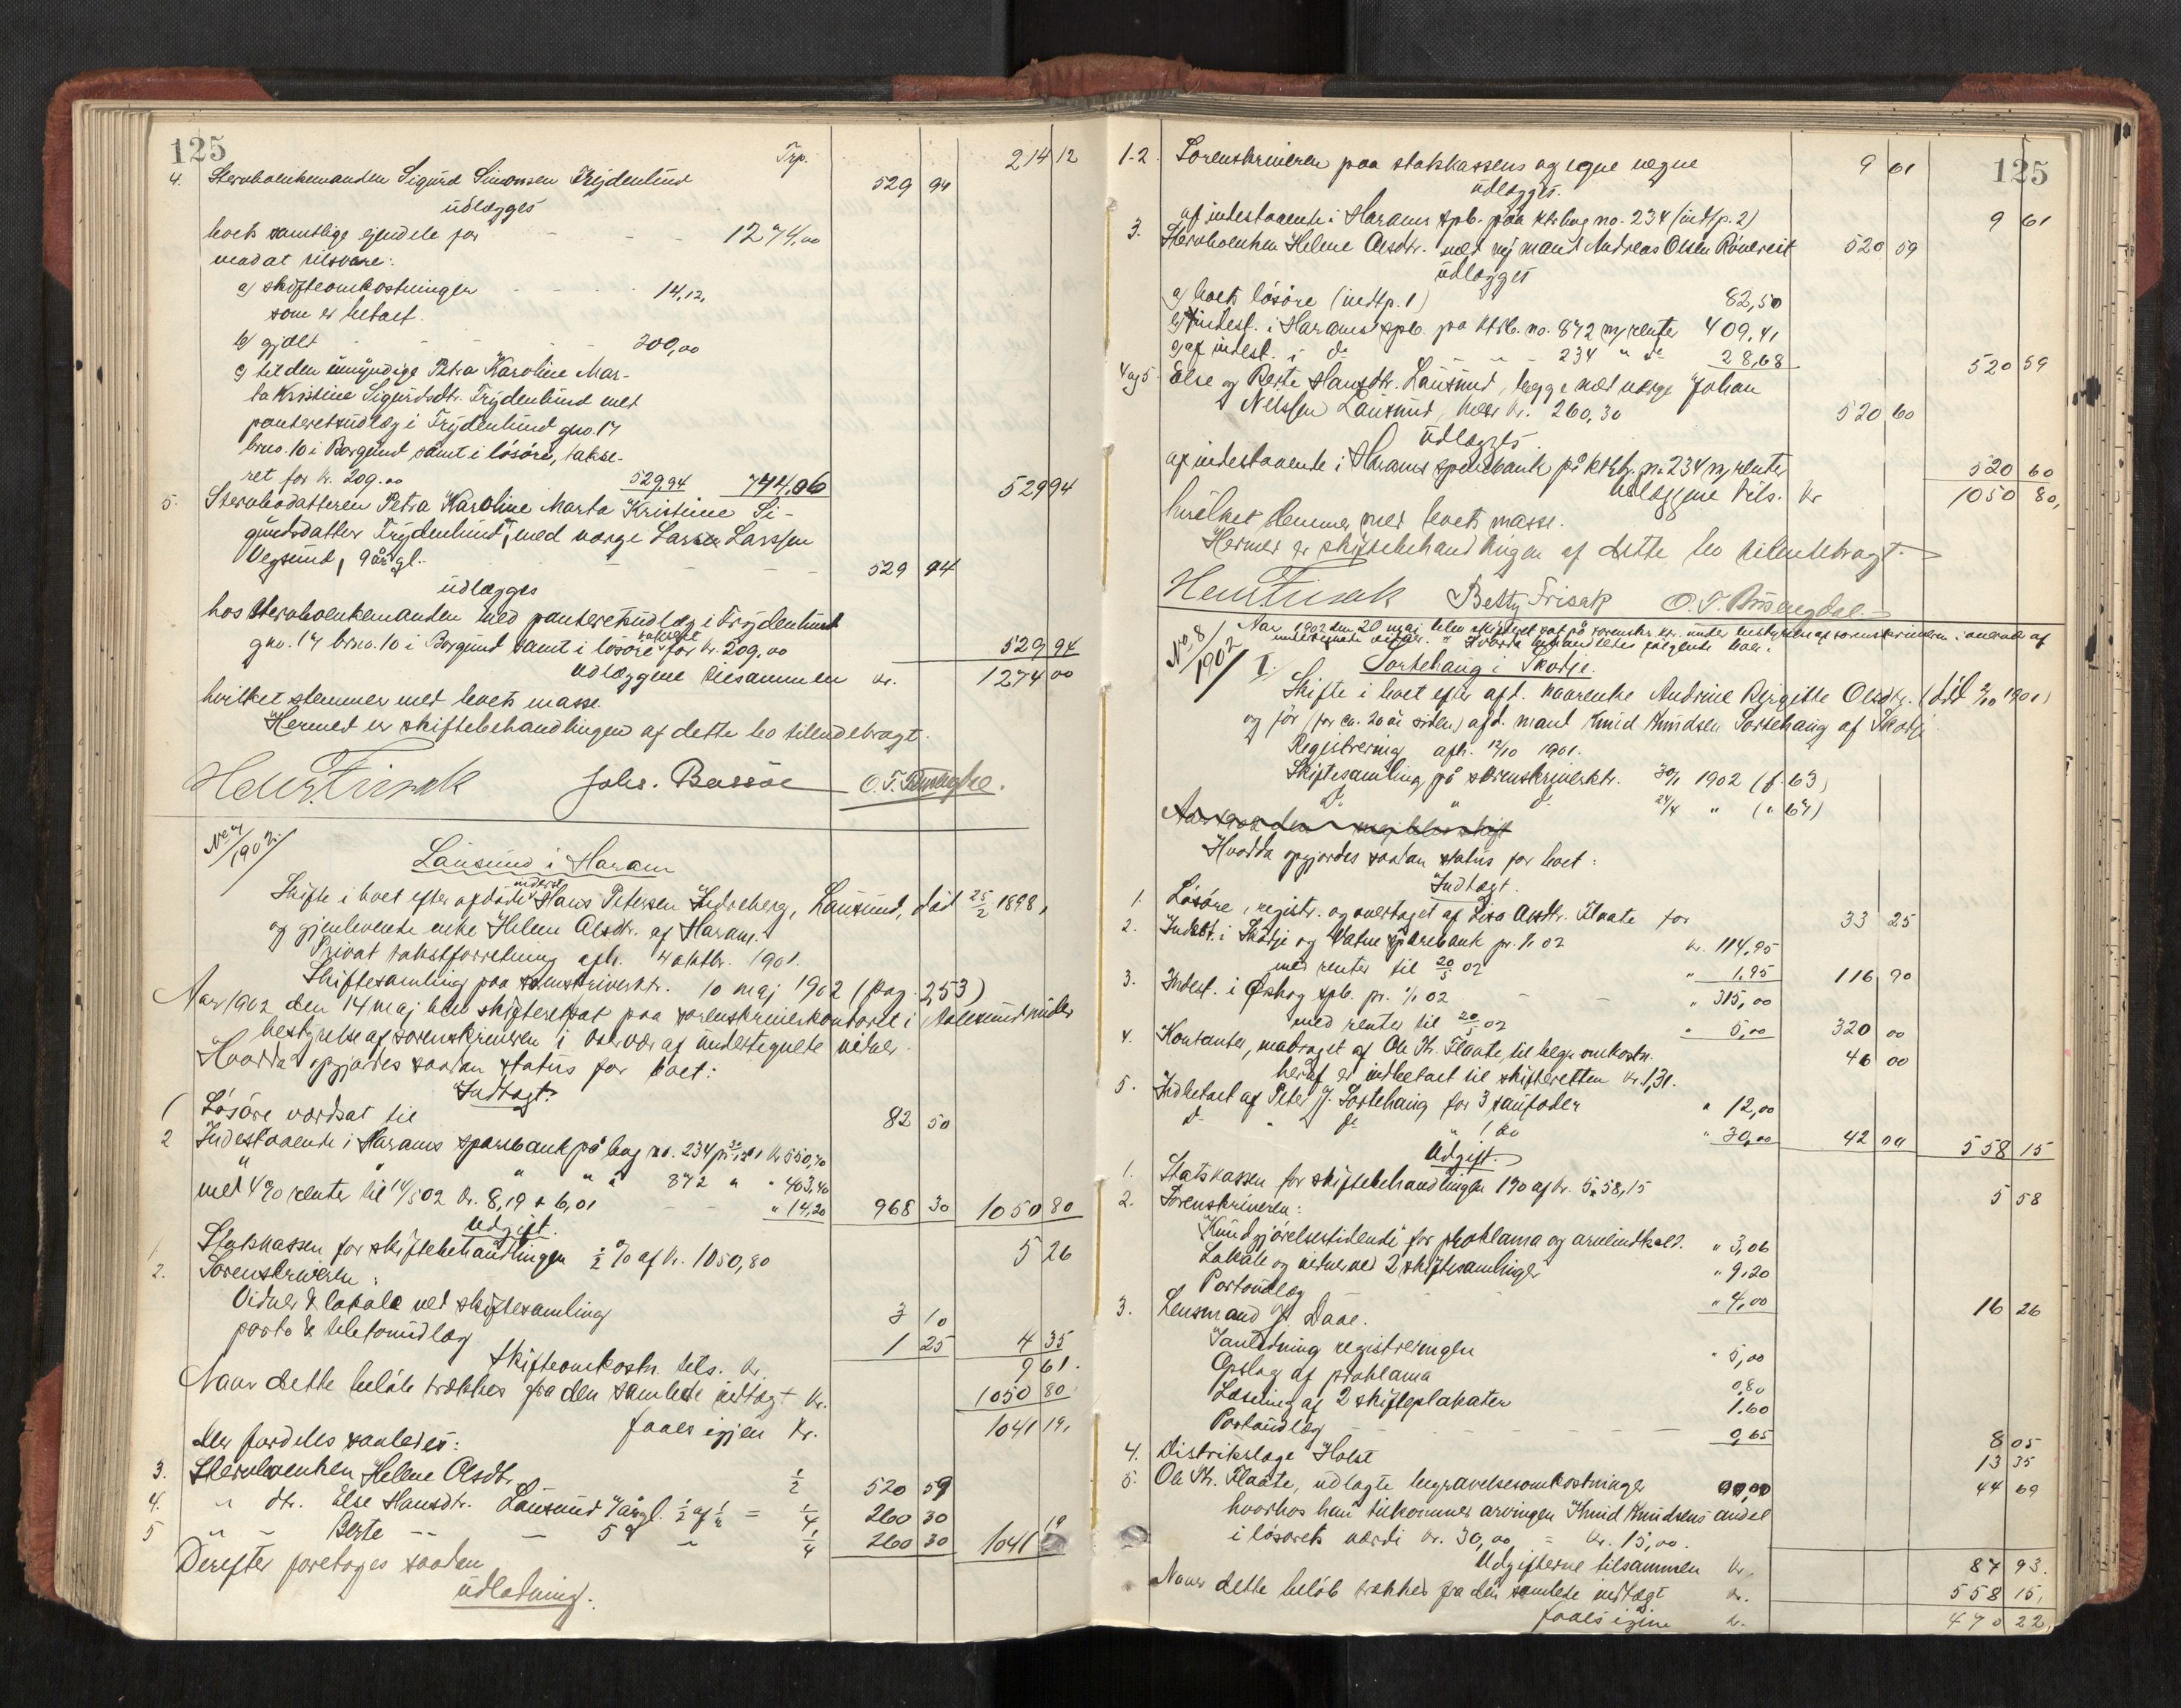 125
Trp. 214 12
4. Stervboenkemanden Sigurd Simonsen Frydenlund 529 94
udlægges
boets samtlige ejendele for 1274,00
mod at tilsvare:
a) skifteomkostninger 14,12,
som er betalt.
b) gjæld 200,00
c) til den umyndige Petra Karoline Mar-
ta Kristine Sigurdsdtr. Frydenlund med
panteretsudlæg i Frydenlund gno. 17
brno. 10 i Borgund samt i løsøre, takse-
ret for kr. 209.00 529,94 744,06 529 94
5. Stervbodatteren Petra Karoline Marta Kristine Si-
gurdsdatter Frydenlund, med værge Lasse Larssen
Vegsund, 9 år gl. 529 94
udlægges
hos stervboenkemanden med panteretsudlæg i Frydenlund
gno. 17 brno. 10 i Borgund samt i løsøre taksert for kr. 209,00 529 94
Udlæggene tilsammen kr. 1274 00
hvilket stemmer med boets masse.
Hermed er skiftebehandlingen af dette bo tilendebragt.
Henr. Frisak Johs. Bassøe
1902
Lausund i Haram
Skifte i boet efter afdøde inderst Hans Petersen Indreberg, Lausund, død 25/2 1898,
og gjenlevende enke Helene Olsdtr. af Haram.
Privat takstforretning afh. 4 oktbr. 1901.
Skiftesamling paa sorenskriverktr. 10 maj 1902 (pag. 253)
Aar 1902 den 14 maj blev skifteret sat paa sorenskriverkontoret i Aalesund under
bestyrelse af sorenskriveren i overvær af undertegnede vidner.
Hvorda opgjordes saadan status for boet:
Indtægt.
1 Løsøre værdsat til 82 50
2 Indestaaende i Harams sparebank på bog no. 234 pr 31/12 01 kr 550,70
" " " " " 872 " " 403,40
med 4% renter til 14/5 02 kr. 8,19 + 6,01 " 14,20 968 30 1050 80
Udgift.
1. Statskassen for skiftebehandlingen ½ % af kr. 1050,80 5 26
2. Sorenskriveren:
Vidner & lokale ved skiftesamling 3 10
porto & telefonudlæg 1 25 4 35
Skifteomkostn. tils. kr. 9 61.
Naar dette beløb trækkes fra den samlede indtægt kr. 1050 80
faaes igjen kr. 1041 19,
der fordeles saaledes:
3. Stervboenken Helene Olsdtr. ½ 520 59
4. " dtr. Else Hansdtr. Lausund 7 årgl. ½ af ½ = ¼ 260 30
5 " - Berte - - 5 " ¼ 260 30 1041 19
Derefter foretages saadan
udlodning.
125
1-2. Sorenskriveren paa statskassens og egne vegne 9 61
udlægges.
af indestaaende i Harams spb. paa ktrbog no. 234 (indtp. 2) 9 61
3. Stervboenken Helene Olsdtr. med ny mand Andreas Olsen 520 59
udlægges
a) boets løsøre (indtp. 1) 82,50
b) indest. i Harams spb. paa ktrb. no. 872 m/ renter 409,41
c) af indest. i do - " - 234 " do 28,68 520 59
4 og 5. Else og Berte Hansdtr. Lausund, begge med værge Johan
Nilssen Lausund, hver kr. 260,30 520 60
udlægges.
af indestaaende i Harams sparebank på ktrb. no. 234 m/ renter 520 60
Udlæggene tils. kr 1050 80,
hvilket stemmer med boets masse.
Hermed er skiftebehandlingen af dette bo tilendebragt.
Henr. Frisak Betty Frisak
No. 8/1902
Aar 1902 den 20 maj blev skifteret sat på sorenskr. ktr. under bestyrelse af sorenskriveren i overvær af
undertegnede vidner. Hvorda behandledes følgende boer:
I. Sortehaug i Skodje.
Skifte i boet efter afd. kaarenke Andrine Birgitte Olsdtr. (død 2/10 1901)
og før (for ca. 20 år siden) afd. mand Knud Knudsen Sortehaug af Skodje
Registrering afh. 12/10 1901.
Skiftesamling på sorenskriverktr. 30/1 1902 (p. 63)
do " do 24/4 " (" 67)
Hvorda opgjordes saadan status for boet:
Indtægt.
1. Løsøre, registr. og overtaget af Lisa Olsdtr. Flaate for 33 25
2. Indest. i Skodje og Vatne sparebank pr. 1/1 02 kr. 114,95
med renter til 20/5 02 " 1,95 116 90
3. Indest. i Ørskog spb. pr. 1/1 02 " 315,00
med renter til 20/5 02 " 5,00 320 00
4. Kontanter, modtaget af Ole Th. Flaate, til begr. omkostn. 46 00
heraf er indbetalt til skifteretten kr. 1,31.
5. Indbetalt af Peter J. Sortehaug for 3 saufoder " 12,00
do " do " 1 ko " 30,00 42 00 558 15
Udgift.
1. Statskassen for skiftebehandlingen 1% af kr. 558,15 5 58
2. Sorenskriveren:
Kundgjørelsestidende for proklama og arveindkald. " 3,06
Lokale og vidner ved 2 skiftesamlinger " 9,20
Portoudlæg " 4,00 16 26
3. Lensmand P. Daae.
I anledning registreringen " 5,00
Opslag af proklama 0,80
Læsning af 2 skifteplakater 1,60
Portoudlæg 0,65 8 05
4. Distriktslæge Holst 13 35
5. Ole Th. Flaate, udlagte begravelsesomkostninger 44 69
hvorhos han tilkommer arvingen Knud Knudsens andel
i løsørets værdi kr. 30,00 = kr. 15,00.
Udgifterne tilsammen kr. 87 93.
Naar dette beløb trækkes fra den samlede indtægt kr. 558 15,
faaes igjen kr. 470 22,